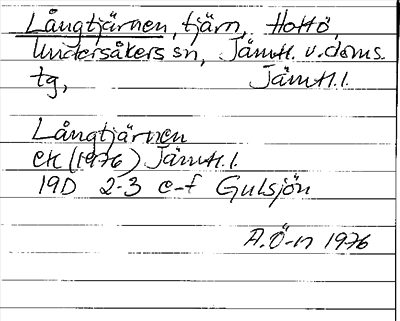 Långtjärnen, tjärn, Hottö,
Undersåkers sn, Jämtl. v. doms.
tg, Jämtl. l.
Långtjärnen
ek (1976) Jämtl. l.
19D 2-3 e-f Gulsjön
A.Ö-n 1976